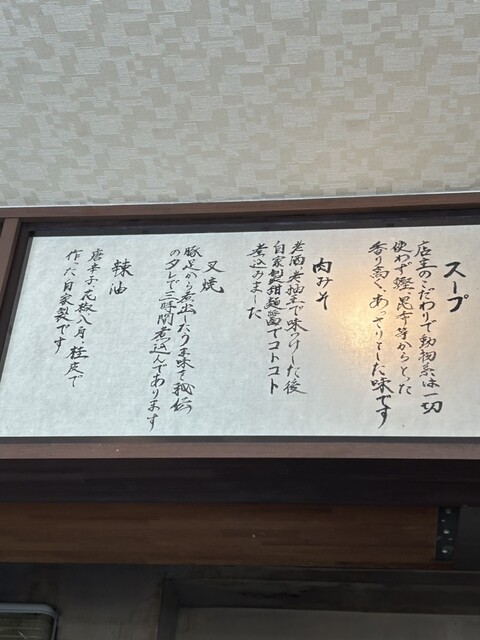 スープ
店主のこだわりで動物系は一切
使わず鰹、昆布等からとった
香り高く、あっさりとした味です
肉みそ
老酒、老抽王で味つけした後
自家製甜麺醤でコトコト
煮込みました
叉焼
豚足から煮出したうま味で秘伝
のタレで三時間煮込んであります
辣油
唐辛子、花椒、八角、桂皮で
作った自家製です